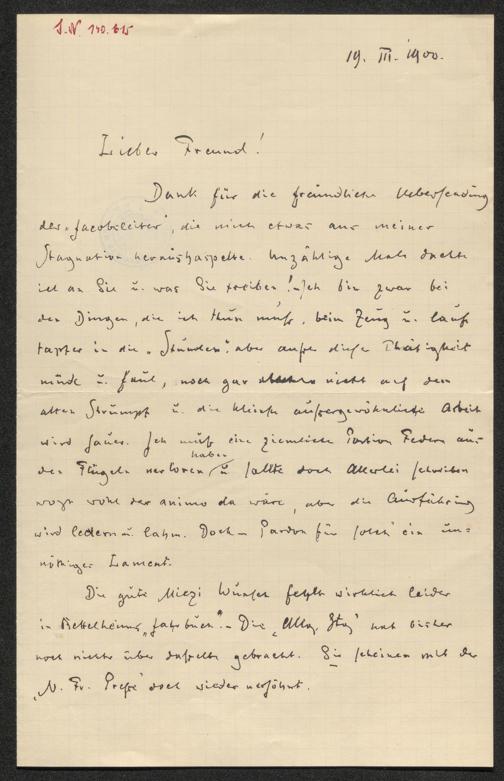 J.N. 190.615
19. III. 1900.
Lieber Freund!
Dank für die freundliche Uebersendung
der „Jacobsleiter", die mich etwas aus meiner
Stagnation heraushaspelte. Unzählige Male dachte
ich an Sie u. was Sie treiben! Ich bin zwar bei
den Dingen, die ich thun muß, beim Zeug u. lauf
tapfer in die „Stunden", aber außer dieser Thätigkeit
müde u. faul, noch gar nicht auf dem
alten Strumpf u. die kleinste außergewöhnliche Arbeit
wird sauer. Ich muß eine ziemliche Portion Federn aus
den Flügeln verloren haben u. sollte doch Allerlei schreiben
wozu wohl der animo da wäre, aber die Ausführung
wird ledern u. lahm. Doch – Pardon für solch' ein un=
nöthiges Lament.
Die gute Miezi Wunsch fehlt wirklich leider
in „Jahrbuch". – Die „Allg. Ztg" hat bisher
noch nichts über dasselbe gebracht. Sie scheinen mit der
„N. Fr. Presse" doch wieder versöhnt.